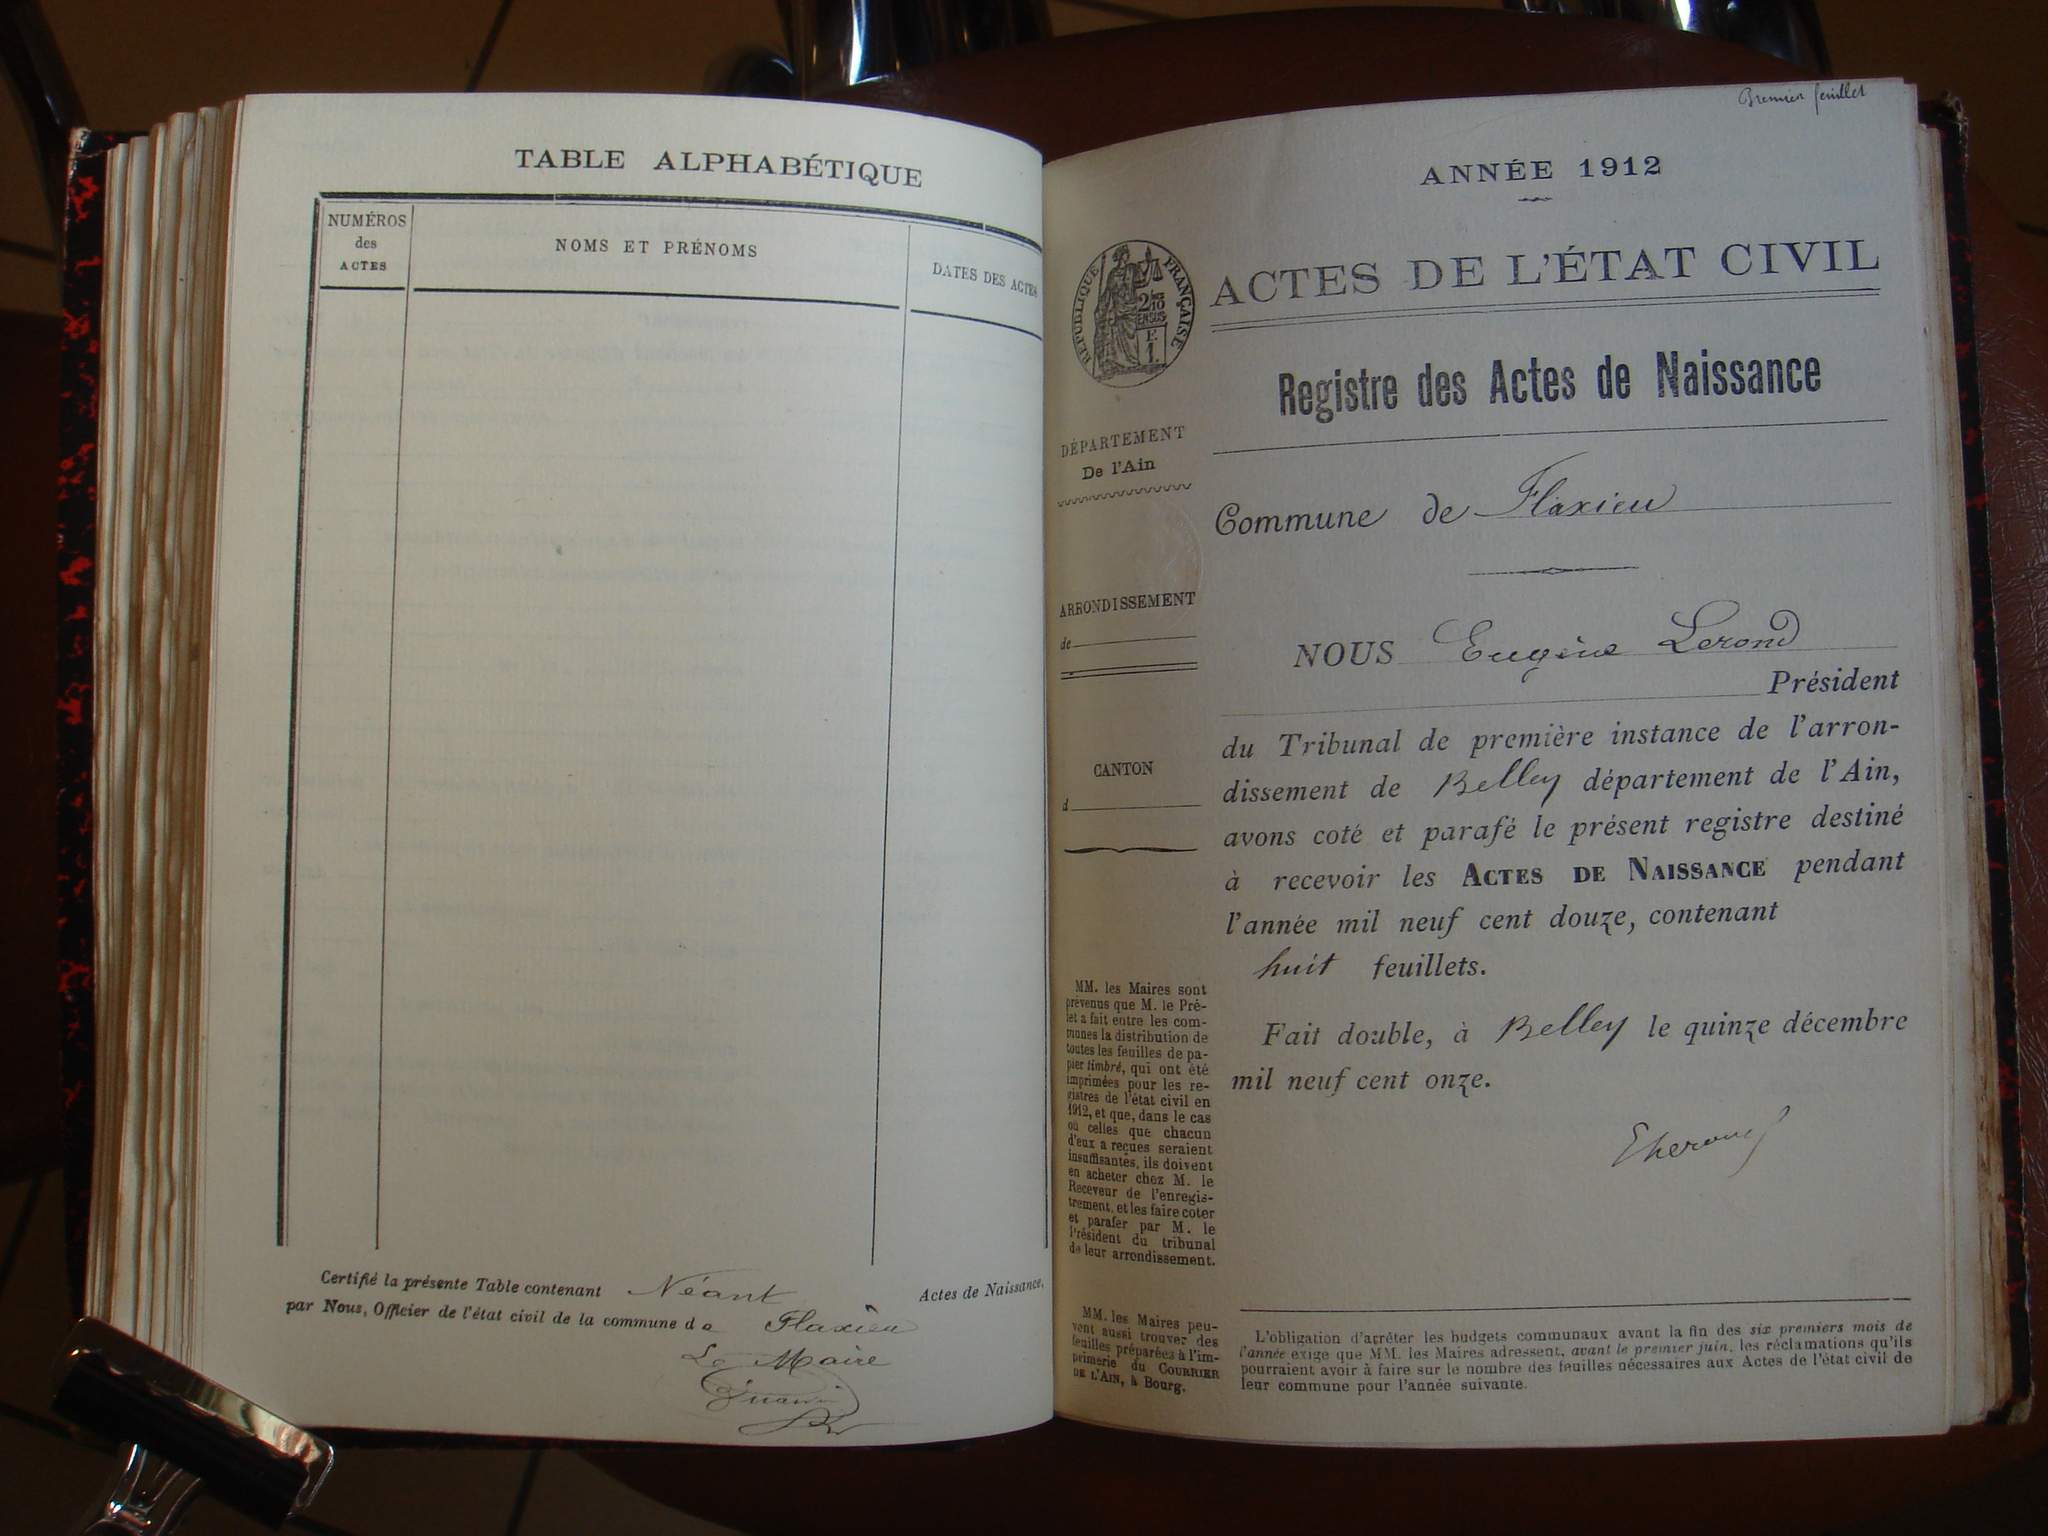 TABLE ALPHABÉTIQUE
NUMÉROS
des
ACTES
NOMS ET PRÉNOMS
DATES DES ACTES
Certifié la présente Table contenant Néant Actes de Naissance,
par Nous, Officier de l'état civil de la commune de Flaxieu
Le Maire
Premier feuillet
ANNÉE 1912
RÉPUBLIQUE FRANÇAISE
ACTES DE L'ÉTAT CIVIL
Registre des Actes de Naissance
DÉPARTEMENT
De l'Ain
Commune de Flaxieu
ARRONDISSEMENT
de
NOUS Eugène Lerond
Président
du Tribunal de première instance de l'arron-
dissement de Belley département de l'Ain,
CANTON
d
avons coté et parafé le présent registre destiné
à recevoir les ACTES DE NAISSANCE pendant
l'année mil neuf cent douze, contenant
huit feuillets.
Fait double, à Belley le quinze décembre
mil neuf cent onze.
MM. les Maires sont
prévenus que M. le Pré-
fet a fait entre les com-
munes la distribution de
toutes les feuilles de pa-
pier timbré, qui ont été
imprimées pour les re-
gistres de l'état civil en
1912, et que, dans le cas
où celles que chacun
d'eux a reçues seraient
insuffisantes, ils doivent
en acheter chez M. le
Receveur de l'enregis-
trement, et les faire coter
et parafer par M. le
Président du tribunal
de leur arrondissement.
MM. les Maires peu-
vent aussi trouver des
feuilles préparées à l'im-
primerie du COURRIER
DE L'AIN, à Bourg.
L'obligation d'arrêter les budgets communaux avant la fin des six premiers mois de
l'année exige que MM. les Maires adressent, avant le premier juin, les réclamations qu'ils
pourraient avoir à faire sur le nombre des feuilles nécessaires aux Actes de l'état civil de
leur commune pour l'année suivante.